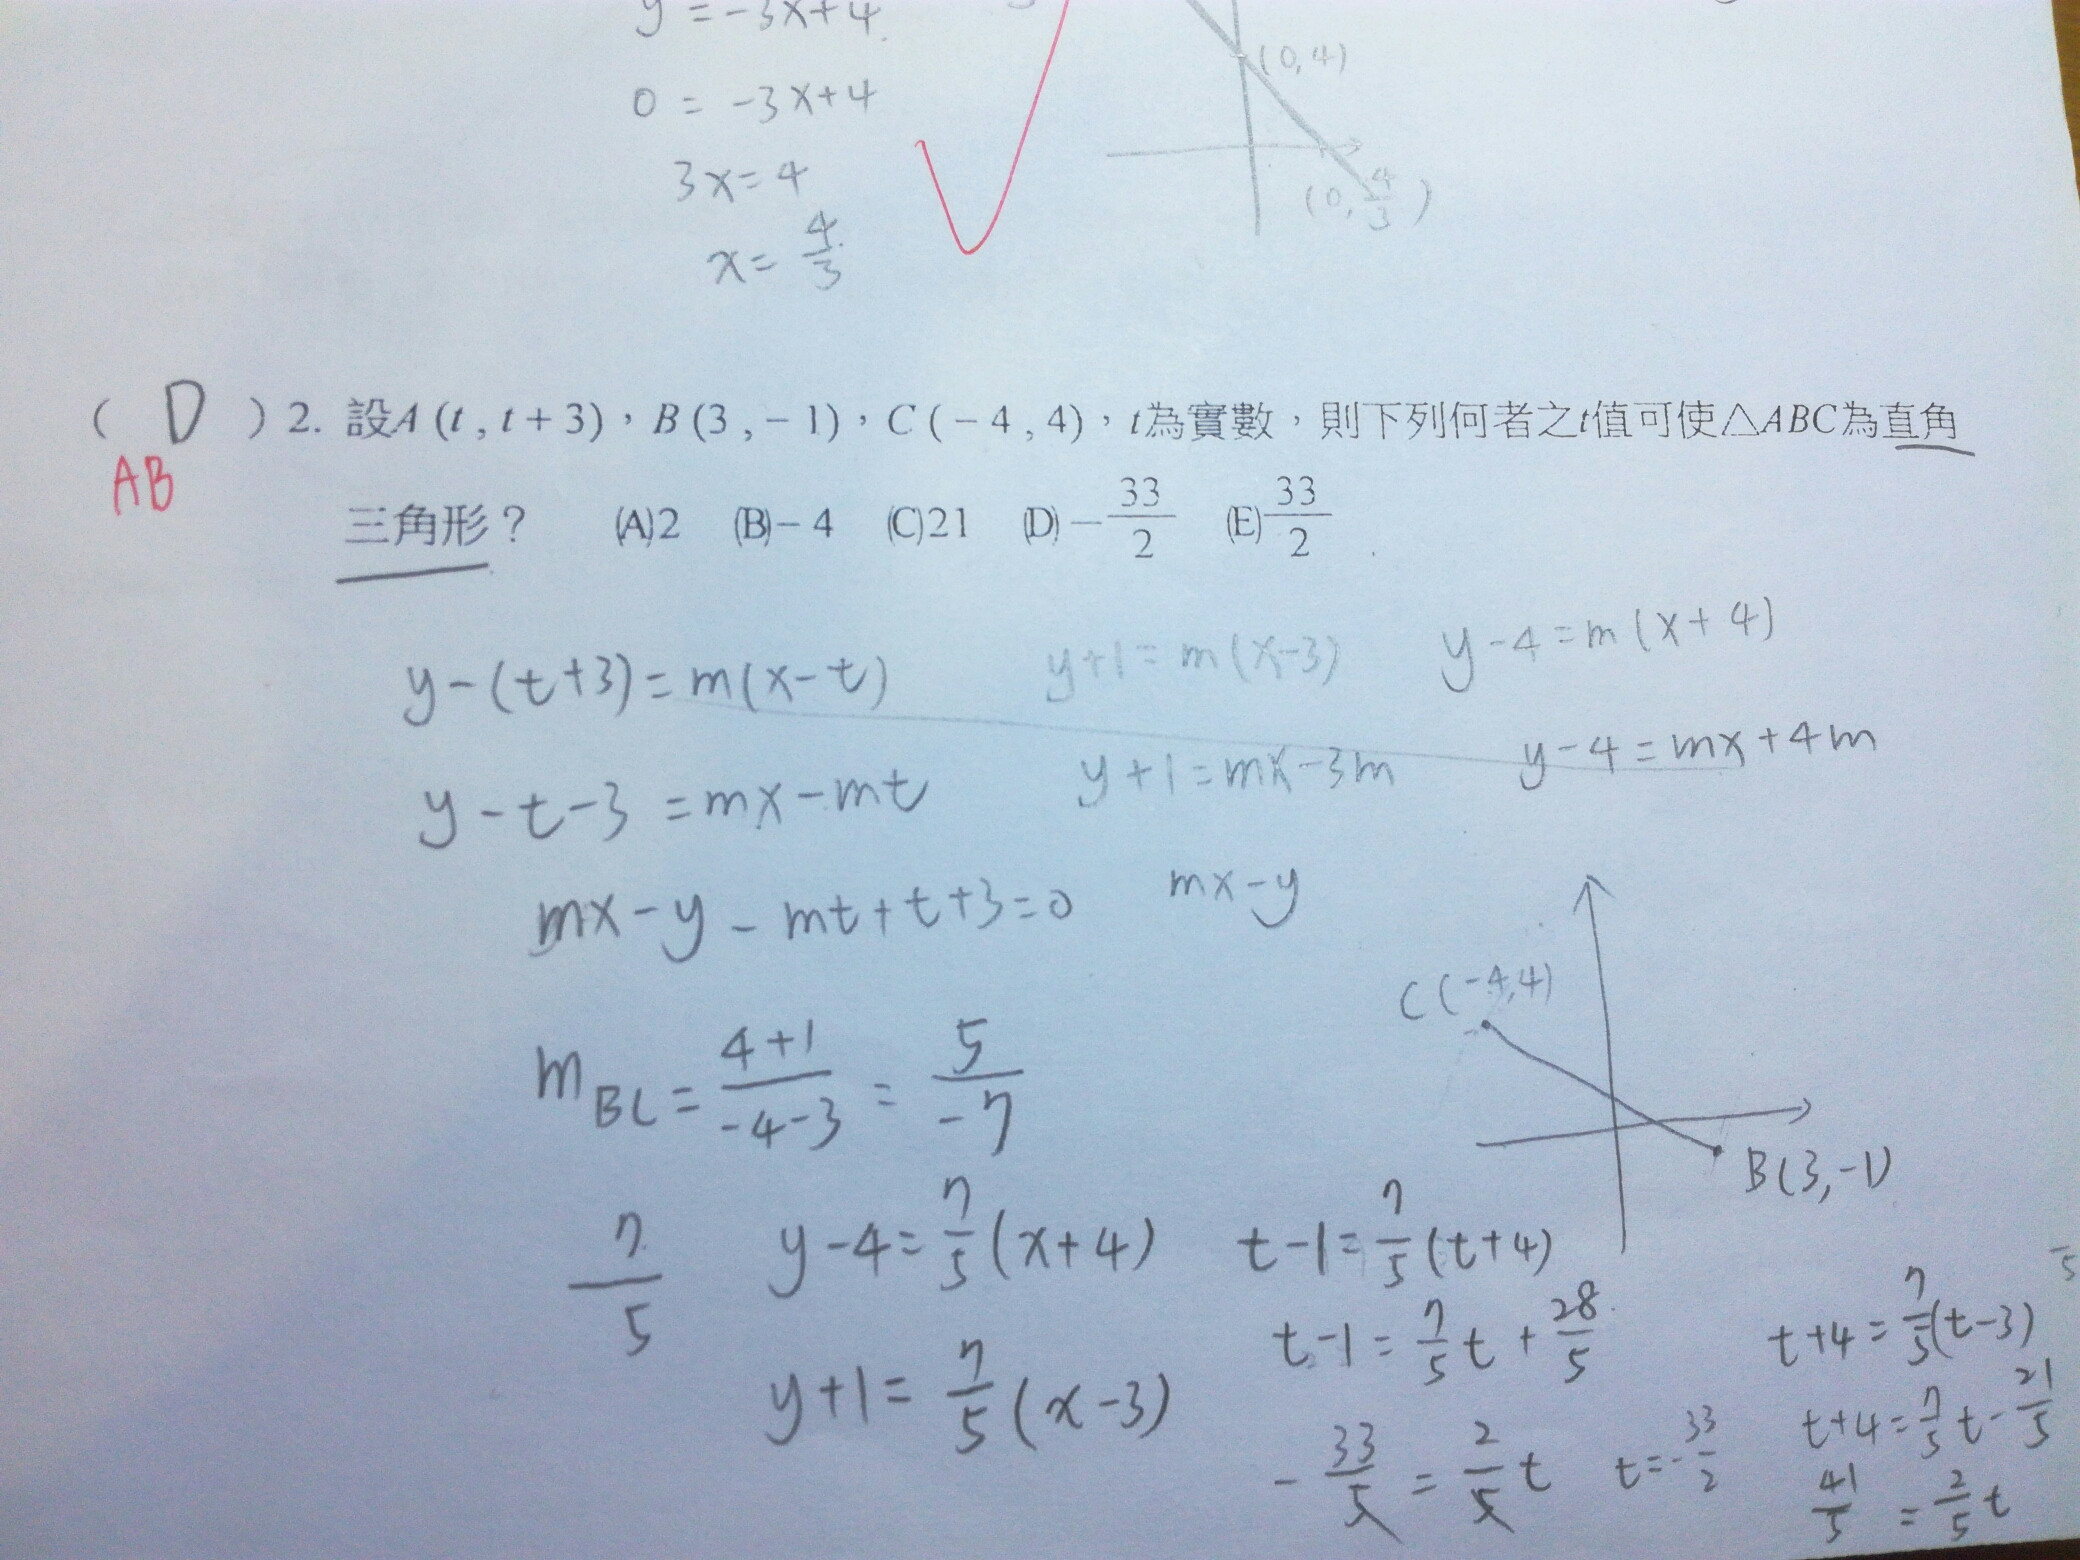 y = -3x+4
0 = -3x+4
3x = 4
x = 4/3
(0,4)
(0, 4/3)
( D ) 2. 設A (t , t + 3)，B (3 , − 1)，C ( − 4 , 4)，t為實數，則下列何者之t值可使△ABC為直角
AB
三角形？ (A)2 (B)− 4 (C)21 (D)− 33/2 (E) 33/2
y-(t+3)=m(x-t)
y+1=m(x-3)
y-4=m(x+4)
y-t-3=mx-mt
y+1=mx-3m
y-4=mx+4m
mx-y-mt+t+3=0
mx-y
C(-4,4)
B(3,-1)
m BC = 4+1/-4-3 = 5/-7
7/5
y-4= 7/5 (x+4)
y+1= 7/5 (x-3)
t-1= 7/5 (t+4)
t-1= 7/5 t + 28/5
- 33/5 = 2/5 t
t=- 33/2
t+4= 7/5 (t-3)
t+4= 7/5 t - 21/5
41/5 = 2/5 t